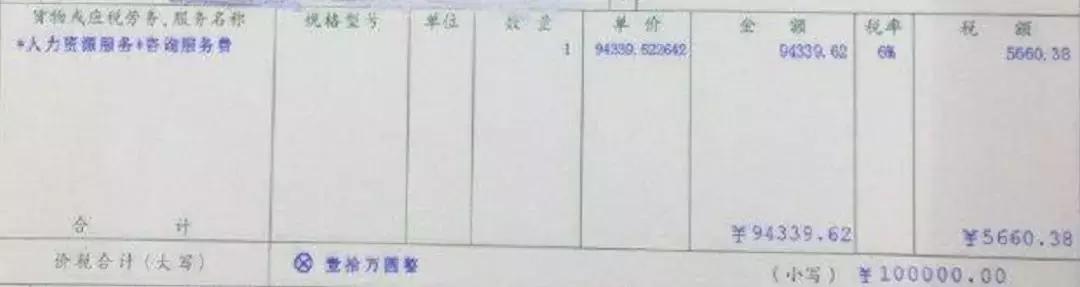 货物或应税劳务、服务名称 规格型号 单位 数量 单价 金额 税率 税额
*人力资源服务*咨询服务费 1 94339.622642 94339.62 6% 5660.38
合计 ¥94339.62 ¥5660.38
价税合计(大写) ⊗ 壹拾万圆整 (小写) ¥100000.00